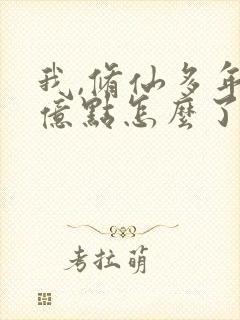 我,脩仙多年
億點怎麼了
考拉萌